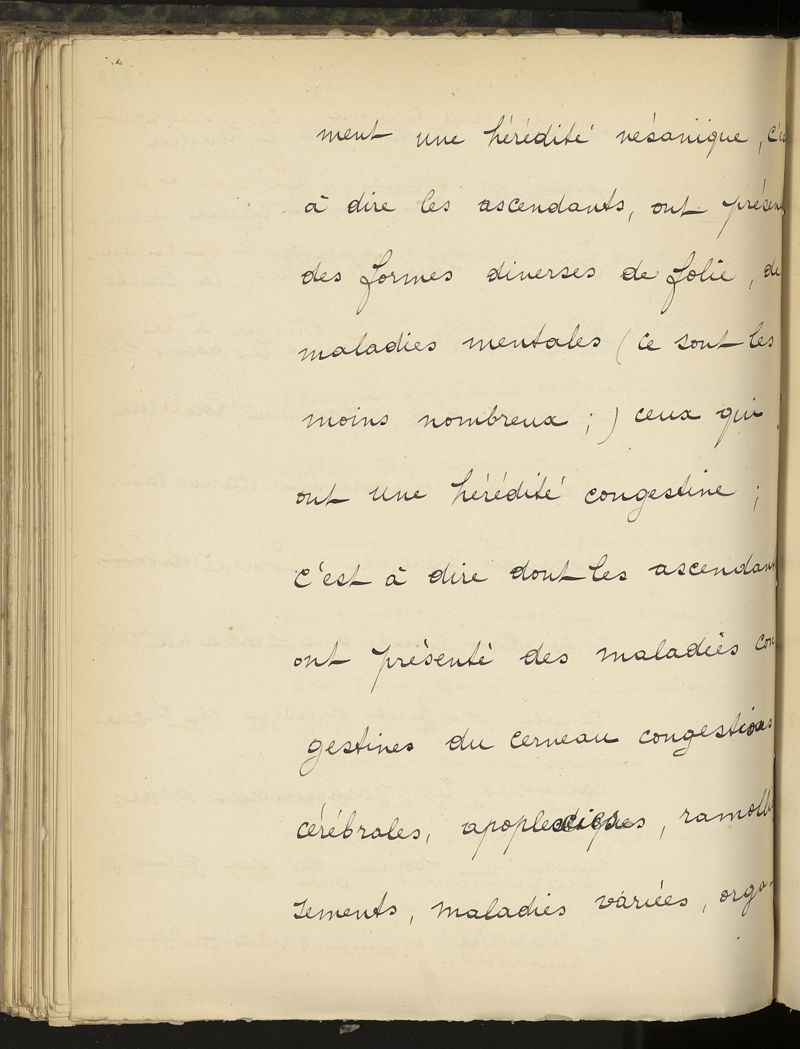 ment une hérédité vésanique, c'es
à dire les ascendants, ont présen
des formes diverses de folie, de
maladies mentales (ce sont les
moins nombreux ;) ceux qui
ont une hérédité congestive ;
c'est à dire dont les ascendan
ont présenté des maladies con
gestives du cerveau congestions
cérébrales, apoplexies, ramollis
sements, maladies variées, orga-